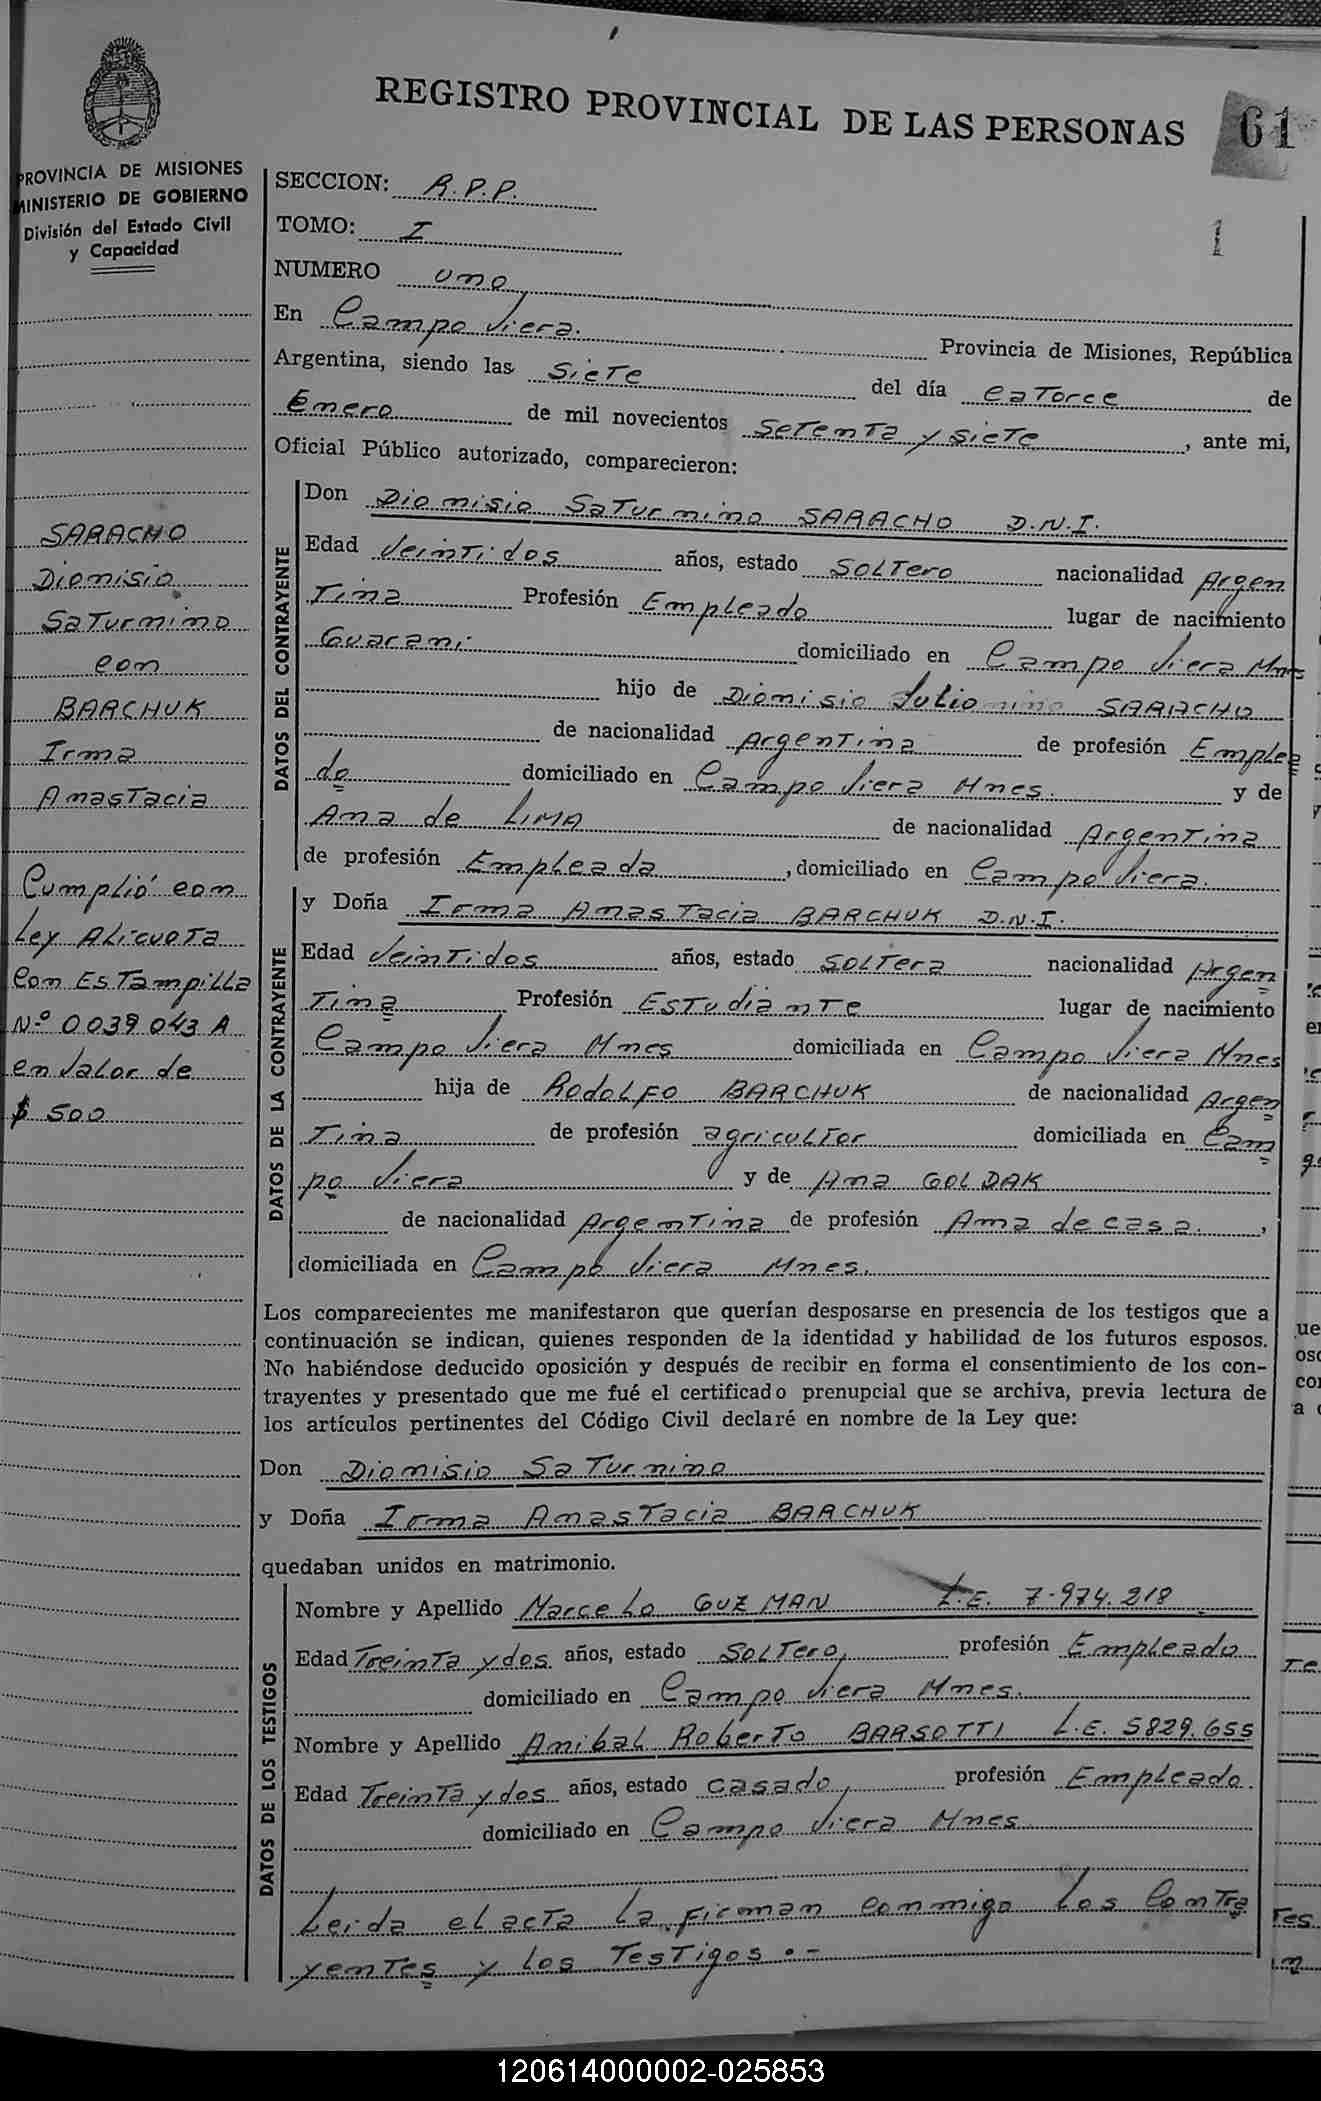 REGISTRO PROVINCIAL DE LAS PERSONAS
61
PROVINCIA DE MISIONES
MINISTERIO DE GOBIERNO
División del Estado Civil
y Capacidad
SARACHO
Dionisio
Saturnino
con
BARCHUK
Irma
Anastacia
Cumplió con
Ley Alicuota
Con Estampilla
Nº 0039043 A
en Valor de
$ 500
SECCION: R.P.P.
TOMO: I
1
NUMERO uno
En Campo Viera.
Provincia de Misiones, República
Argentina, siendo las siete del día catorce de
Enero de mil novecientos setenta y siete, ante mi,
Oficial Público autorizado, comparecieron:
DATOS DEL CONTRAYENTE
Don Dionisio Saturnino SARACHO D.N.I.
Edad Veintidos años, estado soltero nacionalidad Argen
tina Profesión Empleado lugar de nacimiento
Guarani domiciliado en Campo Viera Mnes
hijo de Dionisio Julio SARACHO
de nacionalidad Argentina de profesión Emplea
do domiciliado en Campo Viera Mnes. y de
Ana de LIMA de nacionalidad Argentina
de profesión Empleada, domiciliado en Campo Viera.
DATOS DE LA CONTRAYENTE
y Doña Irma Anastacia BARCHUK D.N.I.
Edad Veintidos años, estado soltera nacionalidad Argen
tina Profesión Estudiante lugar de nacimiento
Campo Viera Mnes domiciliada en Campo Viera Mnes
hija de Rodolfo BARCHUK de nacionalidad Argen
tina de profesión agricultor domiciliada en Cam
po Viera y de Ana GOLDAK
de nacionalidad Argentina de profesión Ama de casa.,
domiciliada en Campo Viera Mnes.
Los comparecientes me manifestaron que querían desposarse en presencia de los testigos que a
continuación se indican, quienes responden de la identidad y habilidad de los futuros esposos.
No habiéndose deducido oposición y después de recibir en forma el consentimiento de los con-
trayentes y presentado que me fué el certificado prenupcial que se archiva, previa lectura de
los artículos pertinentes del Código Civil declaré en nombre de la Ley que:
Don Dionisio Saturnino
y Doña Irma Anastacia BARCHUK
quedaban unidos en matrimonio.
DATOS DE LOS TESTIGOS
Nombre y Apellido Marcelo GUZMAN L.E. 7.974.218
Edad Treinta y dos años, estado soltero, profesión Empleado
domiciliado en Campo Viera Mnes.
Nombre y Apellido Anibal Roberto BARSOTTI L.E. 5829.655
Edad Treinta y dos años, estado casado, profesión Empleado.
domiciliado en Campo Viera Mnes
Leida el acta la firman conmigo los Contra
yentes y los Testigos.-
120614000002-025853